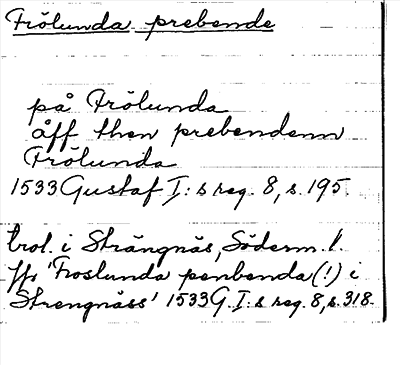 Frölunda prebende
på Frölunda
åff then prebendenn
Frölunda
1533 Gustaf I:s reg. 8, s. 195.
trol. i Strängnäs, Söderm. l.
jfr 'Froslunda penbenda (!) i
Strengnäss' 1533 G. I:s reg. 8, s. 318.